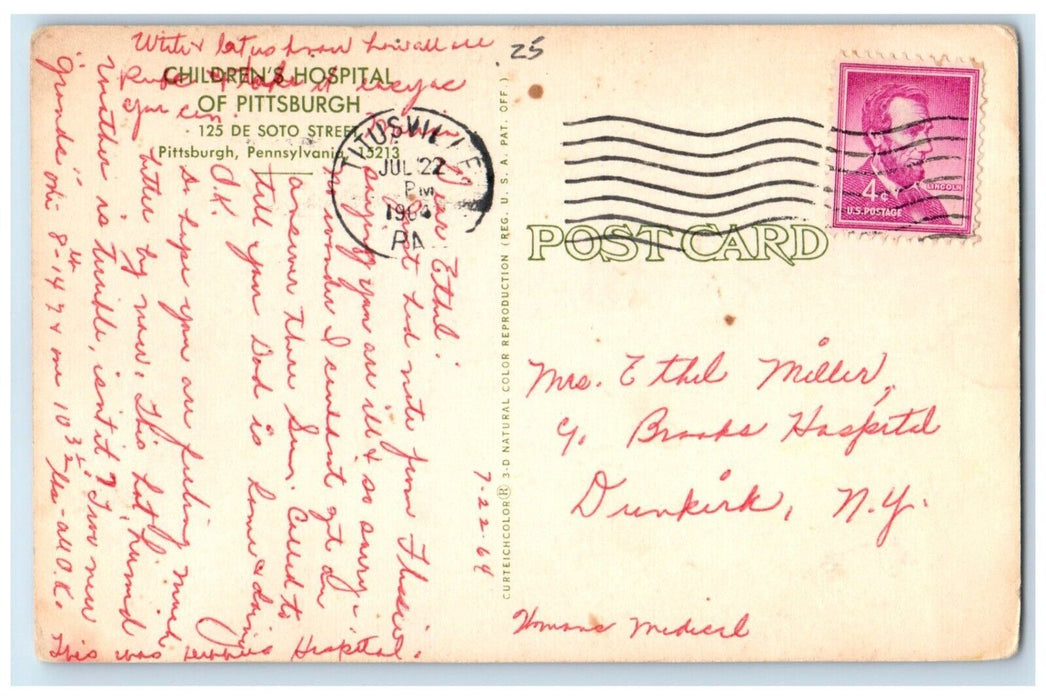 CHILDREN'S HOSPITAL
OF PITTSBURGH
125 DE SOTO STREET
Pittsburgh, Pennsylvania, 15213
7-22-64
Dear Ethel:
Just had note from Flossie
saying you are ill & so sorry.
No wonder I couldn't get an
answer there Sun. Called to
tell you Dad is home & doing
O.K.
So hope you are feeling much
better by now. This hot, humid
weather is terrible, isn't it? Two new
grands "
8-14 7 & on 10
all O.K.
This was Hospital.
Write & let us know how all are
& take it easy
you can.
25
TITUSVILLE
JUL 22
PM
1964
PA.
CURTEICHCOLOR® 3-D NATURAL COLOR REPRODUCTION (REG. U. S. A. PAT. OFF.)
POST CARD
4¢
LINCOLN
U.S. POSTAGE
Mrs. Ethel Miller,
c/o Brooks Hospital
Dunkirk, N.Y.
Womans Medical